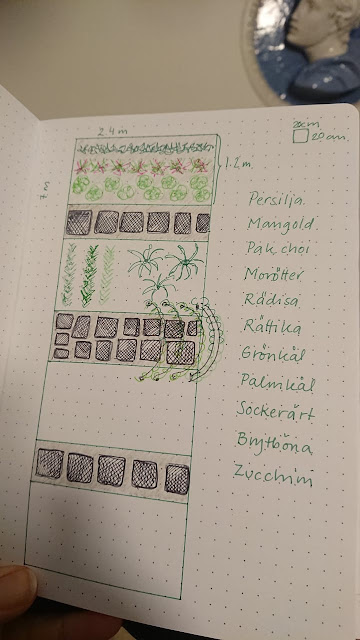 2.4 m
20cm
20cm
1.2 m
7 m
Persilja
Mangold
Pak choi
Morötter
Rädisa
Rättika
Grönkål
Palmkål
Sockerärt
Brytböna
Zucchini